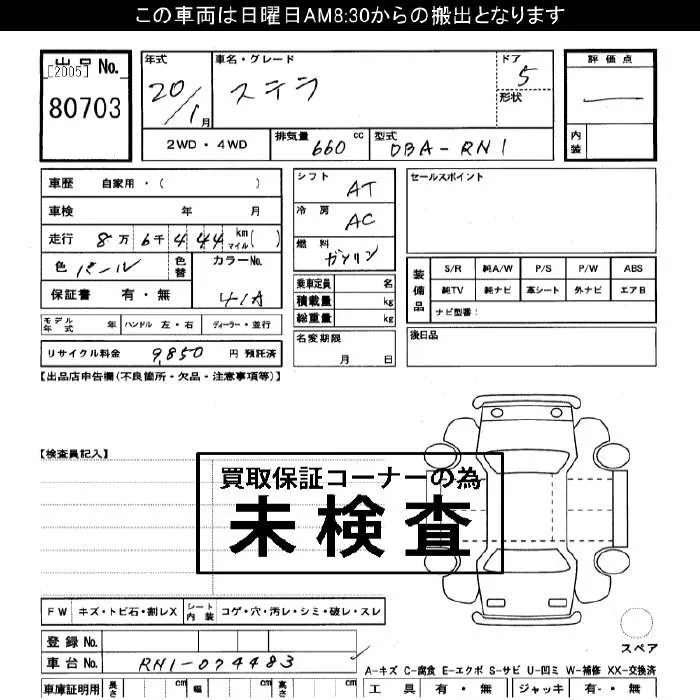 この車両は日曜日AM8:30からの搬出となります
出品 No.
[2005]
80703
年式
20/1月
車名・グレード
ステラ
ドア
5
形状
評価点
内装
2WD・4WD
排気量 660 cc
型式 DBA-RN1
車歴 自家用・( )
車検 年 月
走行 8万 6千 4 4 4 km マイル ( )
色 パール
色替
カラーNo.
41A
保証書 有・無
モデル年式 年 ハンドル 左・右 ディーラー・並行
リサイクル料金 9,850 円 預託済
シフト AT
冷房 AC
燃料 ガソリン
乗車定員 名
積載量 kg
総重量 kg
名変期限
月 日
セールスポイント
装備品
S/R 純A/W P/S P/W ABS
純TV 純ナビ 革シート 外ナビ エアB
ナビ型番:
後日品
【出品店申告欄(不良箇所・欠品・注意事項等)】
【検査員記入】
買取保証コーナーの為
未検査
FW キズ・トビ石・割レX シート内装 コゲ・穴・汚レ・シミ・破レ・スレ
スペア
登録No.
車台No. RN1-074483
A-キズ C-腐食 E-エクボ S-サビ U-凹ミ W-補修 XX-交換済
車庫証明用 長さ cm 幅 cm 高さ cm
工具 有・無 ジャッキ 有・無